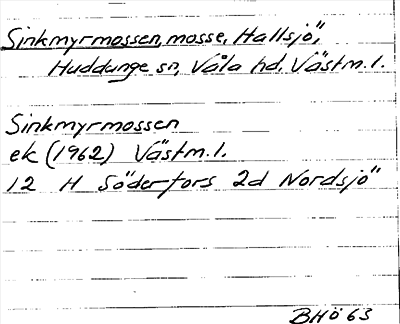 Sinkmyrmossen, mosse, Hallsjö,
Huddunge sn, Våla hd, Västm. l.
Sinkmyrmossen
ek (1962) Västm. l.
12 H Söderfors 2d Nordsjö
BHÖ 63